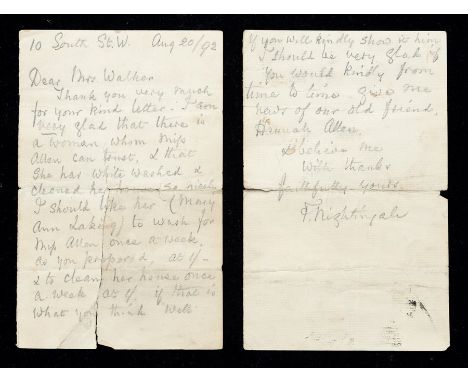 10 South St. W. Aug 20/92
Dear Mrs Walker
Thank you very much
for your kind letter. I am
very glad that there is
a woman, whom Miss
Allen can trust, & that
she has white washed &
cleaned her so nicely
I should like her (Mary
Ann Laking) to wash for
Miss Allen once a week.
as you proposed, at 1/-
& to clean her house once
a week at 1/. if that is
what you think well
If you will kindly show it him
I should be very glad if
you would kindly from
time to time give me
news of our old friend,
Hannah Allen,
& believe me
with thanks
faithfully yours
F. Nightingale